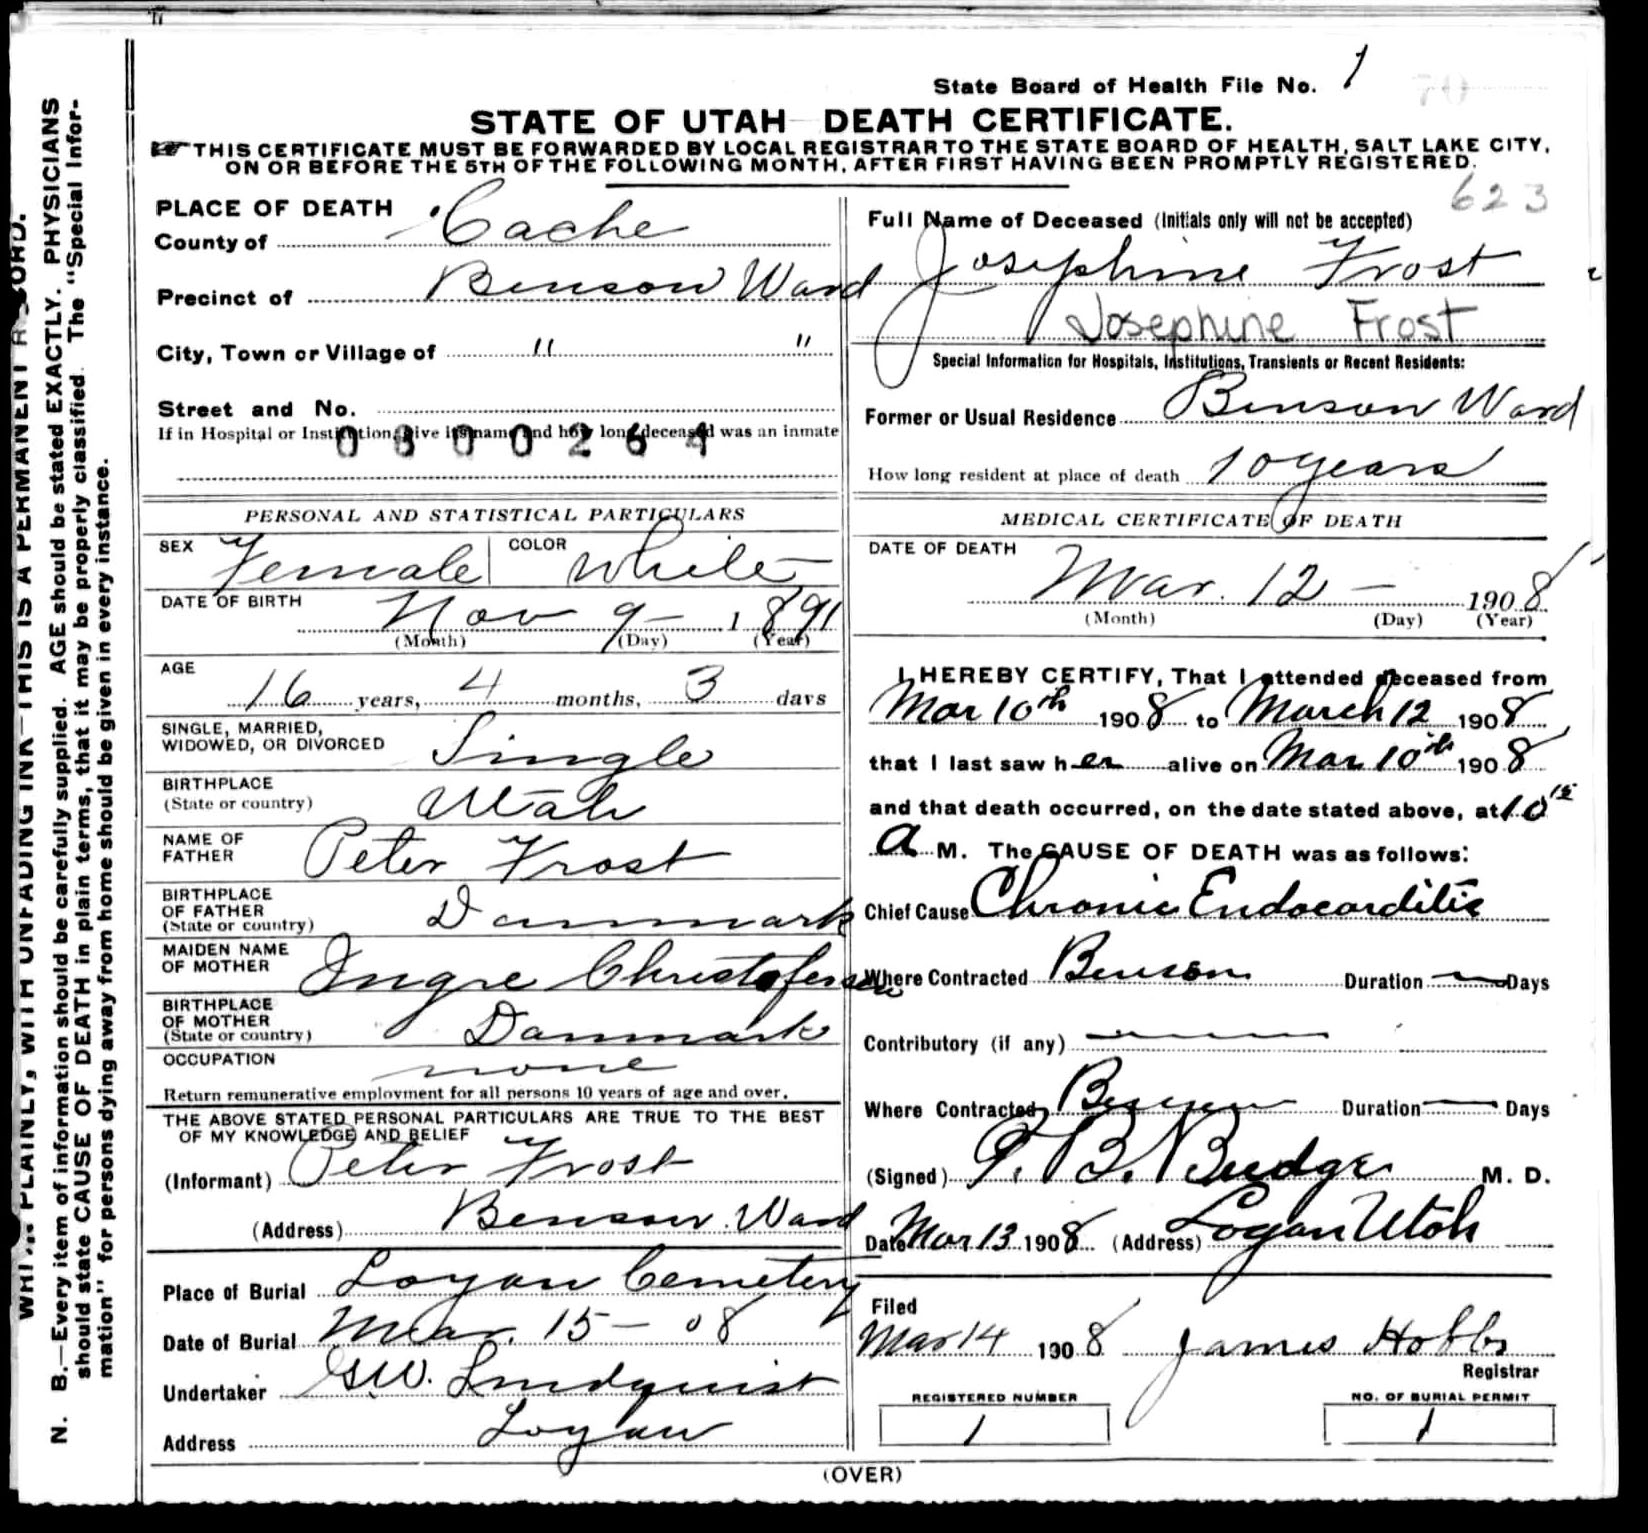 State Board of Health File No. 1
70
STATE OF UTAH DEATH CERTIFICATE.
THIS CERTIFICATE MUST BE FORWARDED BY LOCAL REGISTRAR TO THE STATE BOARD OF HEALTH, SALT LAKE CITY,
ON OR BEFORE THE 5TH OF THE FOLLOWING MONTH, AFTER FIRST HAVING BEEN PROMPTLY REGISTERED.
623
PLACE OF DEATH
County of Cache
Precinct of Benson Ward
City, Town or Village of " "
Street and No.
If in Hospital or Institution, give its name and how long deceased was an inmate
0800264
Full Name of Deceased (Initials only will not be accepted)
Josephine Frost
Josephine Frost
Special Information for Hospitals, Institutions, Transients or Recent Residents:
Former or Usual Residence Benson Ward
How long resident at place of death 10 years
PERSONAL AND STATISTICAL PARTICULARS
SEX Female COLOR White
DATE OF BIRTH Nov 9 - 1891
(Month) (Day) (Year)
AGE
16 years, 4 months, 3 days
SINGLE, MARRIED,
WIDOWED, OR DIVORCED Single
BIRTHPLACE
(State or country) Utah
NAME OF
FATHER Peter Frost
BIRTHPLACE
OF FATHER
(State or country) Danmark
MAIDEN NAME
OF MOTHER Ingre Christofersen
BIRTHPLACE
OF MOTHER
(State or country) Danmark
OCCUPATION none
Return remunerative employment for all persons 10 years of age and over.
THE ABOVE STATED PERSONAL PARTICULARS ARE TRUE TO THE BEST
OF MY KNOWLEDGE AND BELIEF
(Informant) Peter Frost
(Address) Benson Ward
Place of Burial Logan Cemetery
Date of Burial Mar. 15 - 08
Undertaker G.W. Lindquist
Address Logan
MEDICAL CERTIFICATE OF DEATH
DATE OF DEATH
Mar. 12 - 1908
(Month) (Day) (Year)
I HEREBY CERTIFY, That I attended deceased from
Mar 10th 1908 to March 12 1908
that I last saw her alive on Mar 10th 1908
and that death occurred, on the date stated above, at 10 15
a M. The CAUSE OF DEATH was as follows:
Chief Cause Chronic Endocarditis
Where Contracted Benson Duration — Days
Contributory (if any) —
Where Contracted Benson Duration — Days
(Signed) T. B. Budge M. D.
Date Mar 13 1908 (Address) Logan Utah
Filed
Mar 14 1908 James Hobbs
Registrar
REGISTERED NUMBER
1
NO. OF BURIAL PERMIT
1
(OVER)
N. B.—Every item of information should be carefully supplied. AGE should be stated EXACTLY. PHYSICIANS
should state CAUSE OF DEATH in plain terms, that it may be properly classified. The "Special Infor-
mation" for persons dying away from home should be given in every instance.
PLAINLY, WITH UNFADING INK—THIS IS A PERMANENT